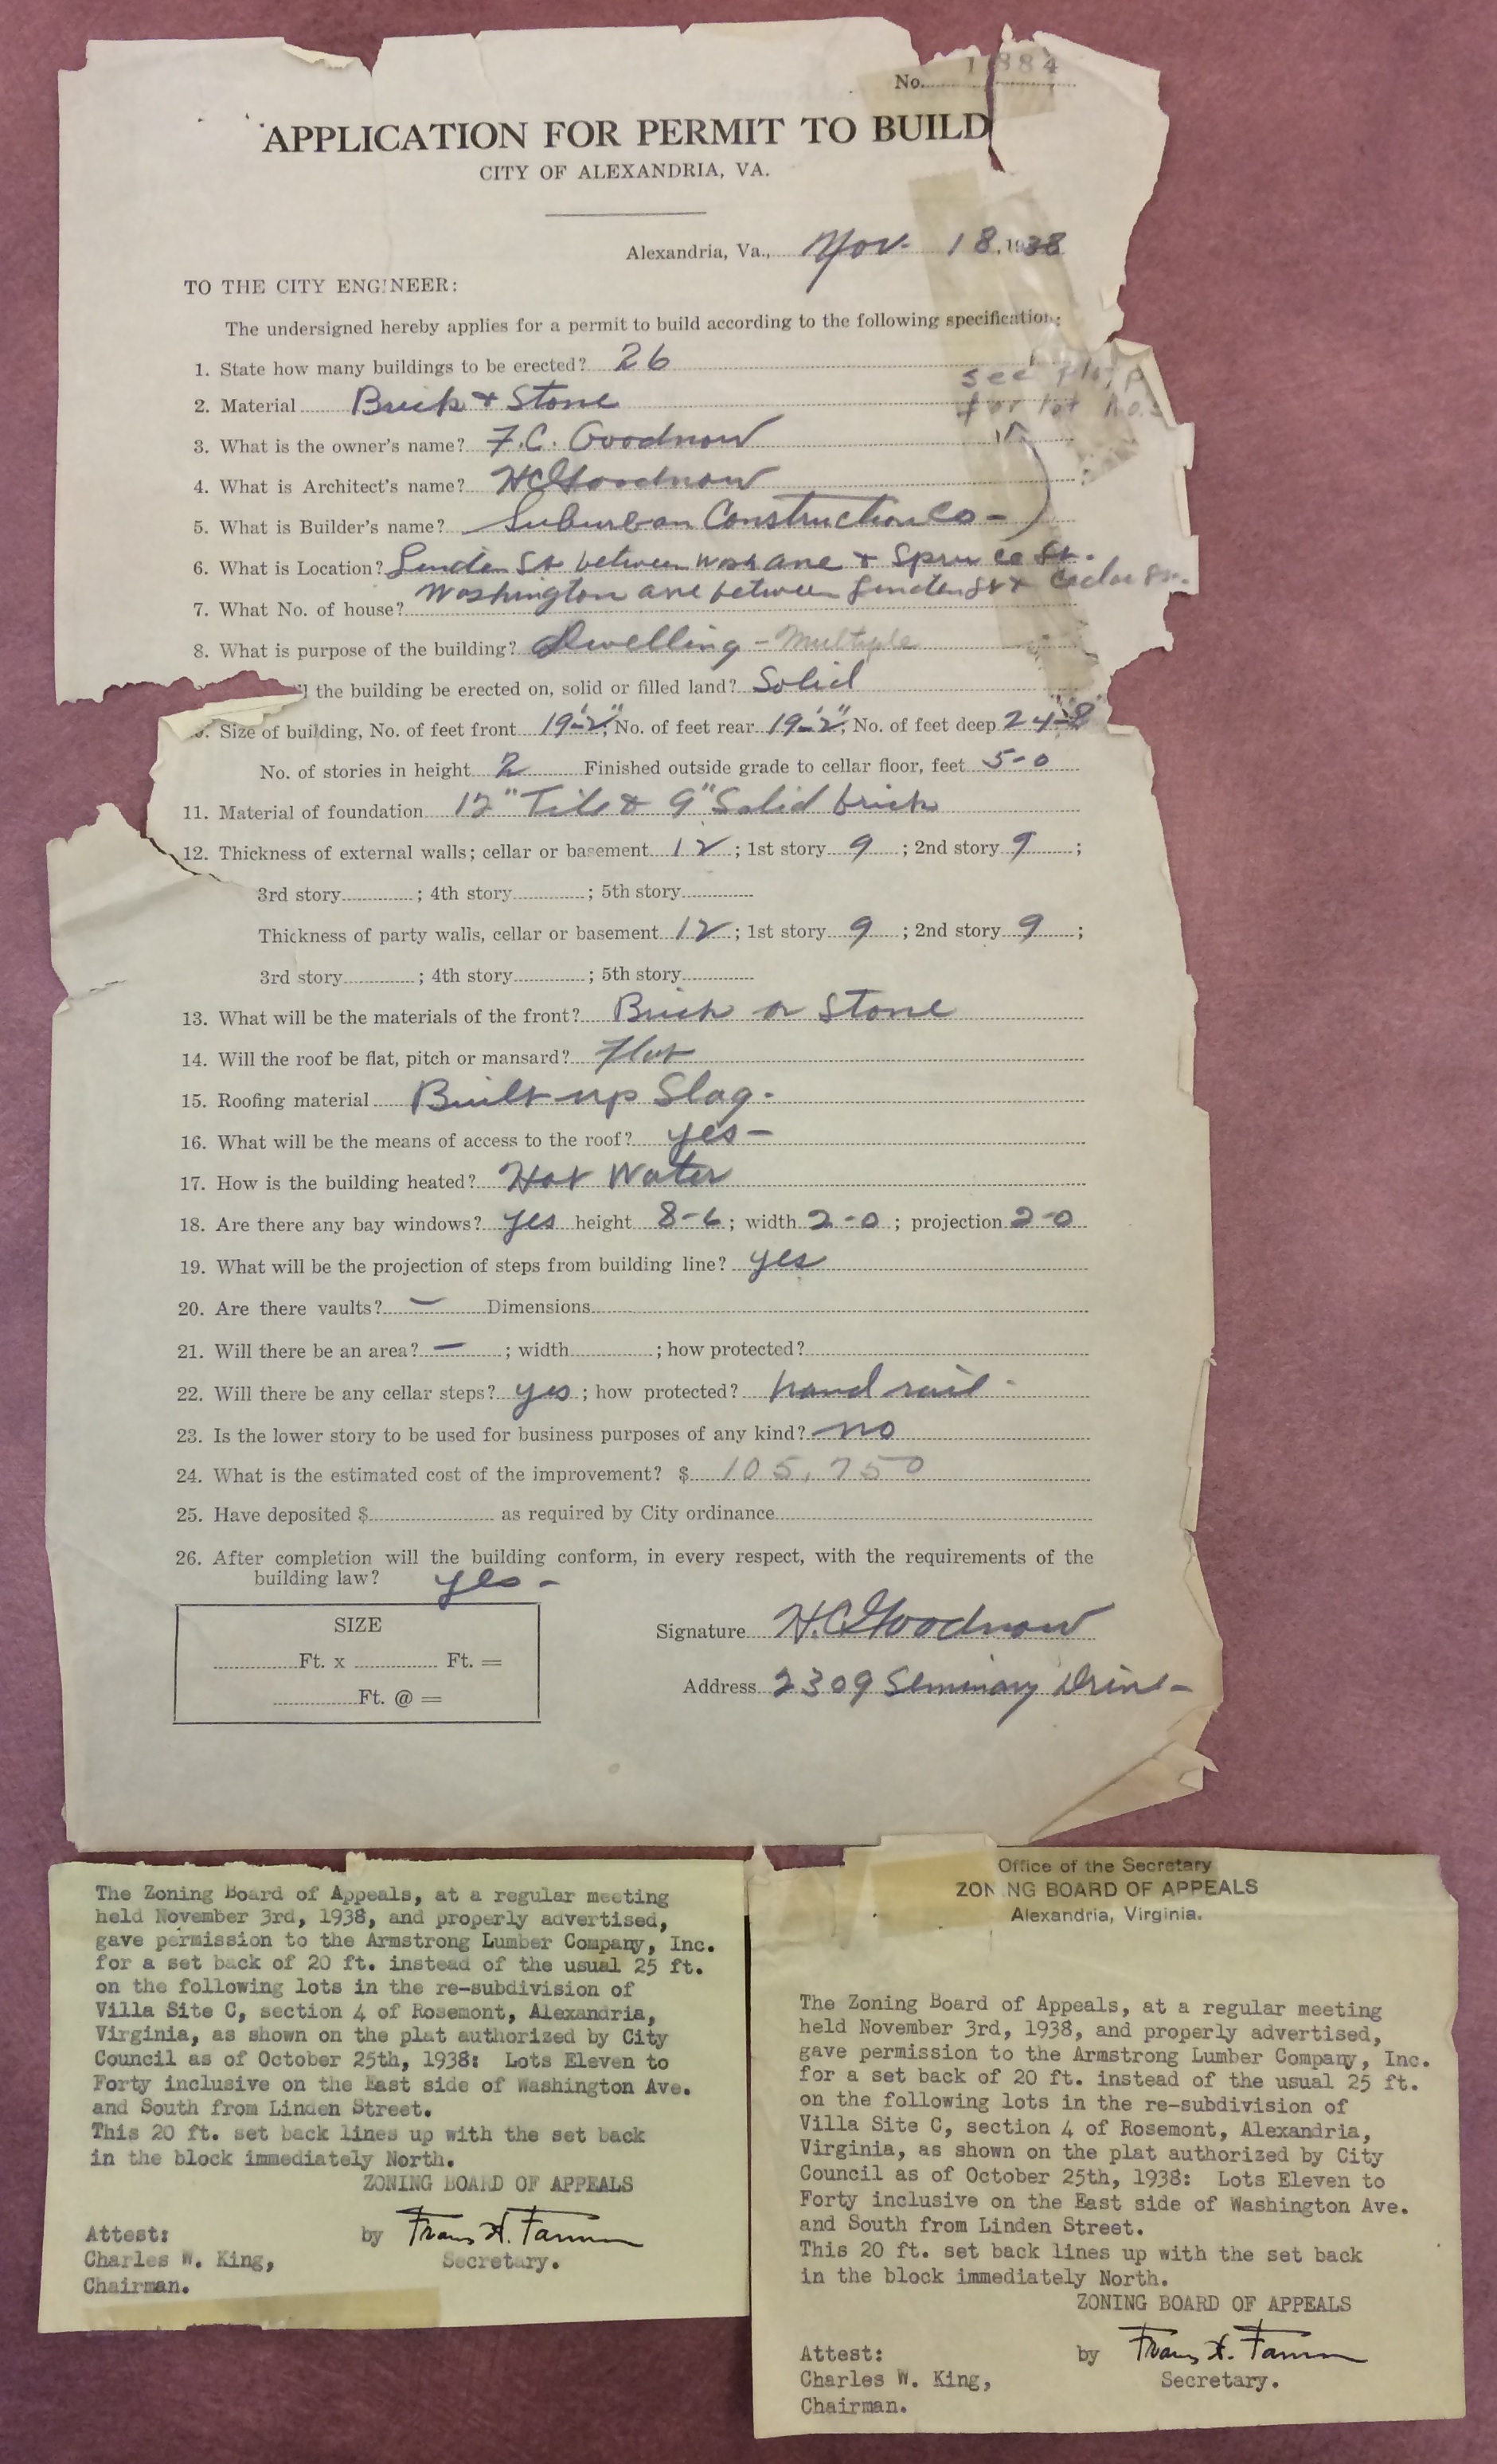 No. 1884
APPLICATION FOR PERMIT TO BUILD
CITY OF ALEXANDRIA, VA.
Alexandria, Va., Nov. 18, 1938
TO THE CITY ENGINEER:
The undersigned hereby applies for a permit to build according to the following specification:
1. State how many buildings to be erected? 26
see plot p
for lot no.s
2. Material Brick & Stone
3. What is the owner's name? F.C. Goodnow
4. What is Architect's name? HCGoodnow
5. What is Builder's name? Suburban Construction Co -
6. What is Location? Linden St between Wash ave & Spruce St.
Washington ave between Linden St & Cedar St.
7. What No. of house?
8. What is purpose of the building? Dwelling - Multiple
l the building be erected on, solid or filled land? Solid
0. Size of building, No. of feet front 19'-2"; No. of feet rear 19'-2"; No. of feet deep 24'-8"
No. of stories in height 2 Finished outside grade to cellar floor, feet 5-0
11. Material of foundation 12" Tile & 9" Solid brick
12. Thickness of external walls; cellar or basement 12; 1st story 9; 2nd story 9;
3rd story; 4th story; 5th story
Thickness of party walls, cellar or basement 12; 1st story 9; 2nd story 9;
3rd story; 4th story; 5th story
13. What will be the materials of the front? Brick or Stone
14. Will the roof be flat, pitch or mansard? Flat
15. Roofing material Built up Slag.
16. What will be the means of access to the roof? yes -
17. How is the building heated? Hot Water
18. Are there any bay windows? yes height 8-6; width 2-0; projection 2-0
19. What will be the projection of steps from building line? yes
20. Are there vaults? - Dimensions
21. Will there be an area? -; width; how protected?
22. Will there be any cellar steps? yes; how protected? hand rail -
23. Is the lower story to be used for business purposes of any kind? no
24. What is the estimated cost of the improvement? $ 105,750
25. Have deposited $ as required by City ordinance
26. After completion will the building conform, in every respect, with the requirements of the
building law? yes -
SIZE
Ft. x Ft. =
Ft. @ =
Signature H.C.Goodnow
Address 2309 Seminary Drive -
The Zoning Board of Appeals, at a regular meeting
held November 3rd, 1938, and properly advertised,
gave permission to the Armstrong Lumber Company, Inc.
for a set back of 20 ft. instead of the usual 25 ft.
on the following lots in the re-subdivision of
Villa Site C, section 4 of Rosemont, Alexandria,
Virginia, as shown on the plat authorized by City
Council as of October 25th, 1938: Lots Eleven to
Forty inclusive on the East side of Washington Ave.
and South from Linden Street.
This 20 ft. set back lines up with the set back
in the block immediately North.
ZONING BOARD OF APPEALS
Attest: by
Charles W. King, Secretary.
Chairman.
Office of the Secretary
ZON NG BOARD OF APPEALS
Alexandria, Virginia.
The Zoning Board of Appeals, at a regular meeting
held November 3rd, 1938, and properly advertised,
gave permission to the Armstrong Lumber Company, Inc.
for a set back of 20 ft. instead of the usual 25 ft.
on the following lots in the re-subdivision of
Villa Site C, section 4 of Rosemont, Alexandria,
Virginia, as shown on the plat authorized by City
Council as of October 25th, 1938: Lots Eleven to
Forty inclusive on the East side of Washington Ave.
and South from Linden Street.
This 20 ft. set back lines up with the set back
in the block immediately North.
ZONING BOARD OF APPEALS
Attest: by
Charles W. King, Secretary.
Chairman.